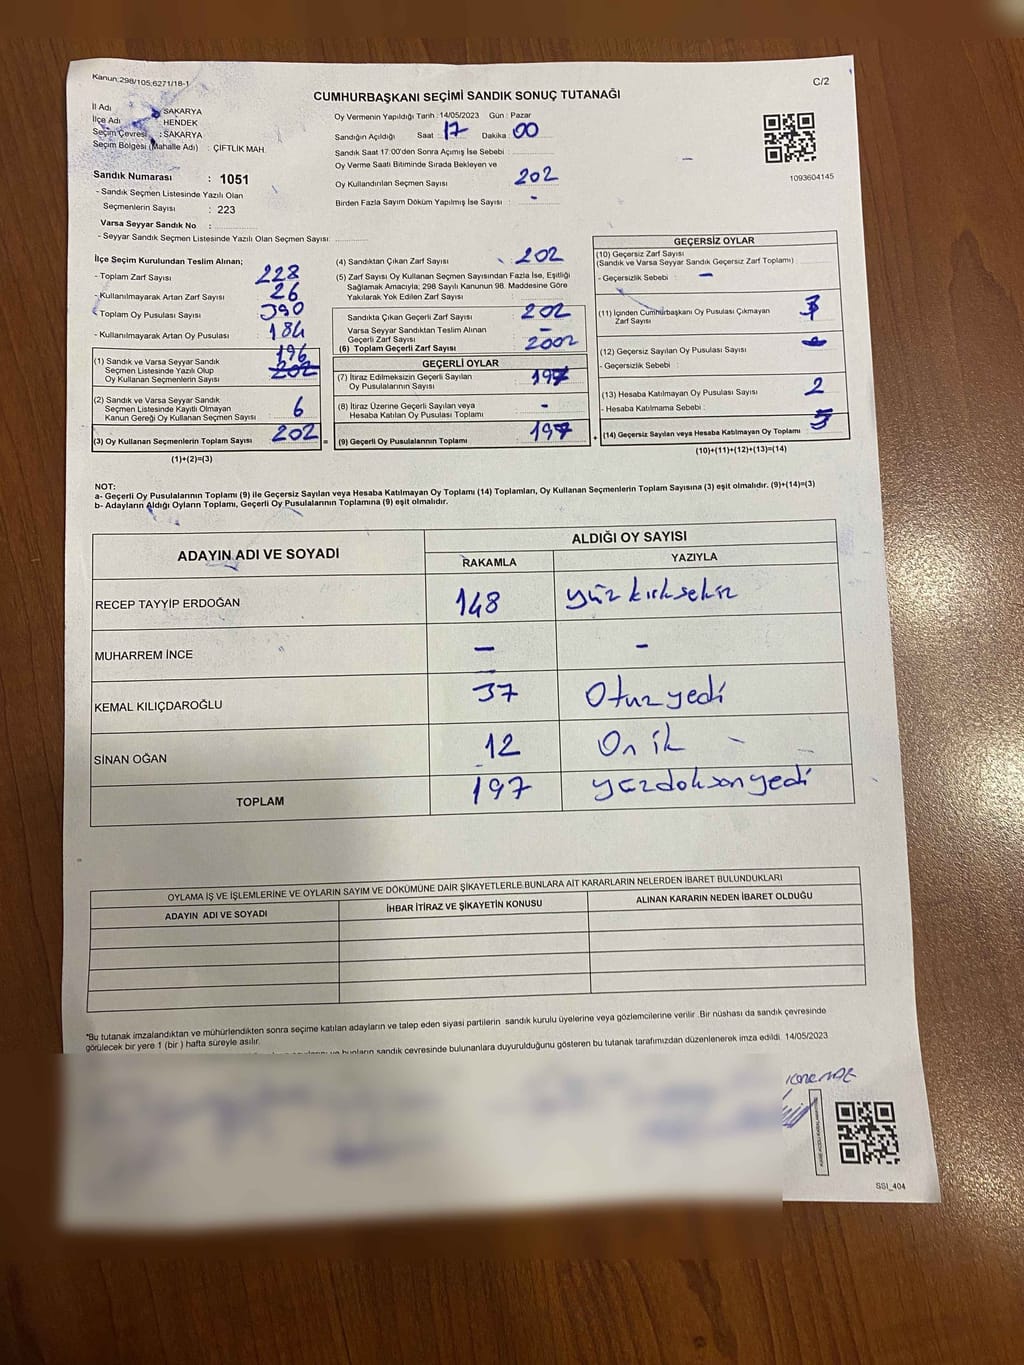 Kanun:298/105,6271/18-1
C/2
CUMHURBAŞKANI SEÇİMİ SANDIK SONUÇ TUTANAĞI
İl Adı : SAKARYA
İlçe Adı : HENDEK
Seçim Çevresi : SAKARYA
Seçim Bölgesi (Mahalle Adı) : ÇİFTLİK MAH.
Sandık Numarası : 1051
- Sandık Seçmen Listesinde Yazılı Olan
Seçmenlerin Sayısı : 223
Varsa Seyyar Sandık No :
- Seyyar Sandık Seçmen Listesinde Yazılı Olan Seçmen Sayısı:
Oy Vermenin Yapıldığı Tarih : 14/05/2023 Gün : Pazar
Sandığın Açıldığı Saat 17 Dakika 00
Sandık Saat 17:00'den Sonra Açımış İse Sebebi :
Oy Verme Saati Bitiminde Sırada Bekleyen ve
Oy Kullandırılan Seçmen Sayısı 202
Birden Fazla Sayım Döküm Yapılmış İse Sayısı : -
1093604145
İlçe Seçim Kurulundan Teslim Alınan;
- Toplam Zarf Sayısı 228
- Kullanılmayarak Artan Zarf Sayısı 26
- Toplam Oy Pusulası Sayısı 390
- Kullanılmayarak Artan Oy Pusulası 184
(1) Sandık ve Varsa Seyyar Sandık 196
Seçmen Listesinde Yazılı Olup 202
Oy Kullanan Seçmenlerin Sayısı
(2) Sandık ve Varsa Seyyar Sandık
Seçmen Listesinde Kayıtlı Olmayan 6
Kanun Gereği Oy Kullanan Seçmen Sayısı
(3) Oy Kullanan Seçmenlerin Toplam Sayısı 202 =
(1)+(2)=(3)
(4) Sandıktan Çıkan Zarf Sayısı : 202
(5) Zarf Sayısı Oy Kullanan Seçmen Sayısından Fazla İse, Eşitliği
Sağlamak Amacıyla; 298 Sayılı Kanunun 98. Maddesine Göre
Yakılarak Yok Edilen Zarf Sayısı :
Sandıkta Çıkan Geçerli Zarf Sayısı : 202
Varsa Seyyar Sandıktan Teslim Alınan
Geçerli Zarf Sayısı : -
(6) Toplam Geçerli Zarf Sayısı : 2002
GEÇERLİ OYLAR
(7) İtiraz Edilmeksizin Geçerli Sayılan
Oy Pusulalarının Sayısı : 197
(8) İtiraz Üzerine Geçerli Sayılan veya
Hesaba Katılan Oy Pusulası Toplamı : -
(9) Geçerli Oy Pusulalarının Toplamı : 197 +
GEÇERSİZ OYLAR
(10) Geçersiz Zarf Sayısı
(Sandık ve Varsa Seyyar Sandık Geçersiz Zarf Toplamı)
- Geçersizlik Sebebi : -
(11) İçinden Cumhurbaşkanı Oy Pusulası Çıkmayan
Zarf Sayısı : 3
(12) Geçersiz Sayılan Oy Pusulası Sayısı :
- Geçersizlik Sebebi :
(13) Hesaba Katılmayan Oy Pusulası Sayısı : 2
- Hesaba Katılmama Sebebi :
(14) Geçersiz Sayılan veya Hesaba Katılmayan Oy Toplamı : 5
(10)+(11)+(12)+(13)=(14)
NOT:
a- Geçerli Oy Pusulalarının Toplamı (9) ile Geçersiz Sayılan veya Hesaba Katılmayan Oy Toplamı (14) Toplamları, Oy Kullanan Seçmenlerin Toplam Sayısına (3) eşit olmalıdır. (9)+(14)=(3)
b- Adayların Aldığı Oyların Toplamı, Geçerli Oy Pusulalarının Toplamına (9) eşit olmalıdır.
ADAYIN ADI VE SOYADI
ALDIĞI OY SAYISI
RAKAMLA YAZIYLA
RECEP TAYYİP ERDOĞAN 148 yüz kırksekiz
MUHARREM İNCE - -
KEMAL KILIÇDAROĞLU 37 Otuz yedi
SİNAN OĞAN 12 On ik
TOPLAM 197 yüzdoksanyedi
OYLAMA İŞ VE İŞLEMLERİNE VE OYLARIN SAYIM VE DÖKÜMÜNE DAİR ŞİKAYETLERLE BUNLARA AİT KARARLARIN NELERDEN İBARET BULUNDUKLARI
ADAYIN ADI VE SOYADI İHBAR İTİRAZ VE ŞİKAYETİN KONUSU ALINAN KARARIN NEDEN İBARET OLDUĞU
*Bu tutanak imzalandıktan ve mühürlendikten sonra seçime katılan adayların ve talep eden siyasi partilerin sandık kurulu üyelerine veya gözlemcilerine verilir. Bir nüshası da sandık çevresinde
görülecek bir yere 1 (bir) hafta süreyle asılır.
bunların sandık çevresinde bulunanlara duyurulduğunu gösteren bu tutanak tarafımızdan düzenlenerek imza edildi. 14/05/2023
SSI_404